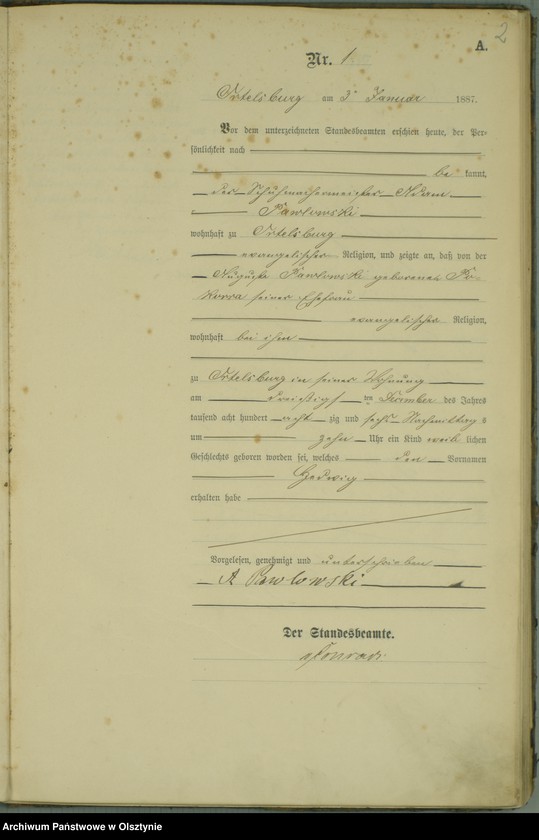 2
A.
Nr. 1
Ortelsburg am 3ᵗ Januar 1887.
Vor dem unterzeichneten Standesbeamten erschien heute, der Per-
sönlichkeit nach
be kannt,
der Schuhmachermeister Adam
Pawlowski
wohnhaft zu Ortelsburg
evangelischer Religion, und zeigte an, daß von der
Auguste Pawlowski geborenen Po-
korra seiner Ehefrau
evangelischer Religion,
wohnhaft bei ihm
zu Ortelsburg in seiner Wohnung
am dreißigsten Dezember des Jahres
tausend acht hundert acht zig und sechs Nachmittags
um zehn Uhr ein Kind weib lichen
Geschlechts geboren worden sei, welches den Vornamen
Hedwig
erhalten habe
Vorgelesen, genehmigt und unterschrieben
A Pawlowski
Der Standesbeamte.
Archiwum Państwowe w Olsztynie